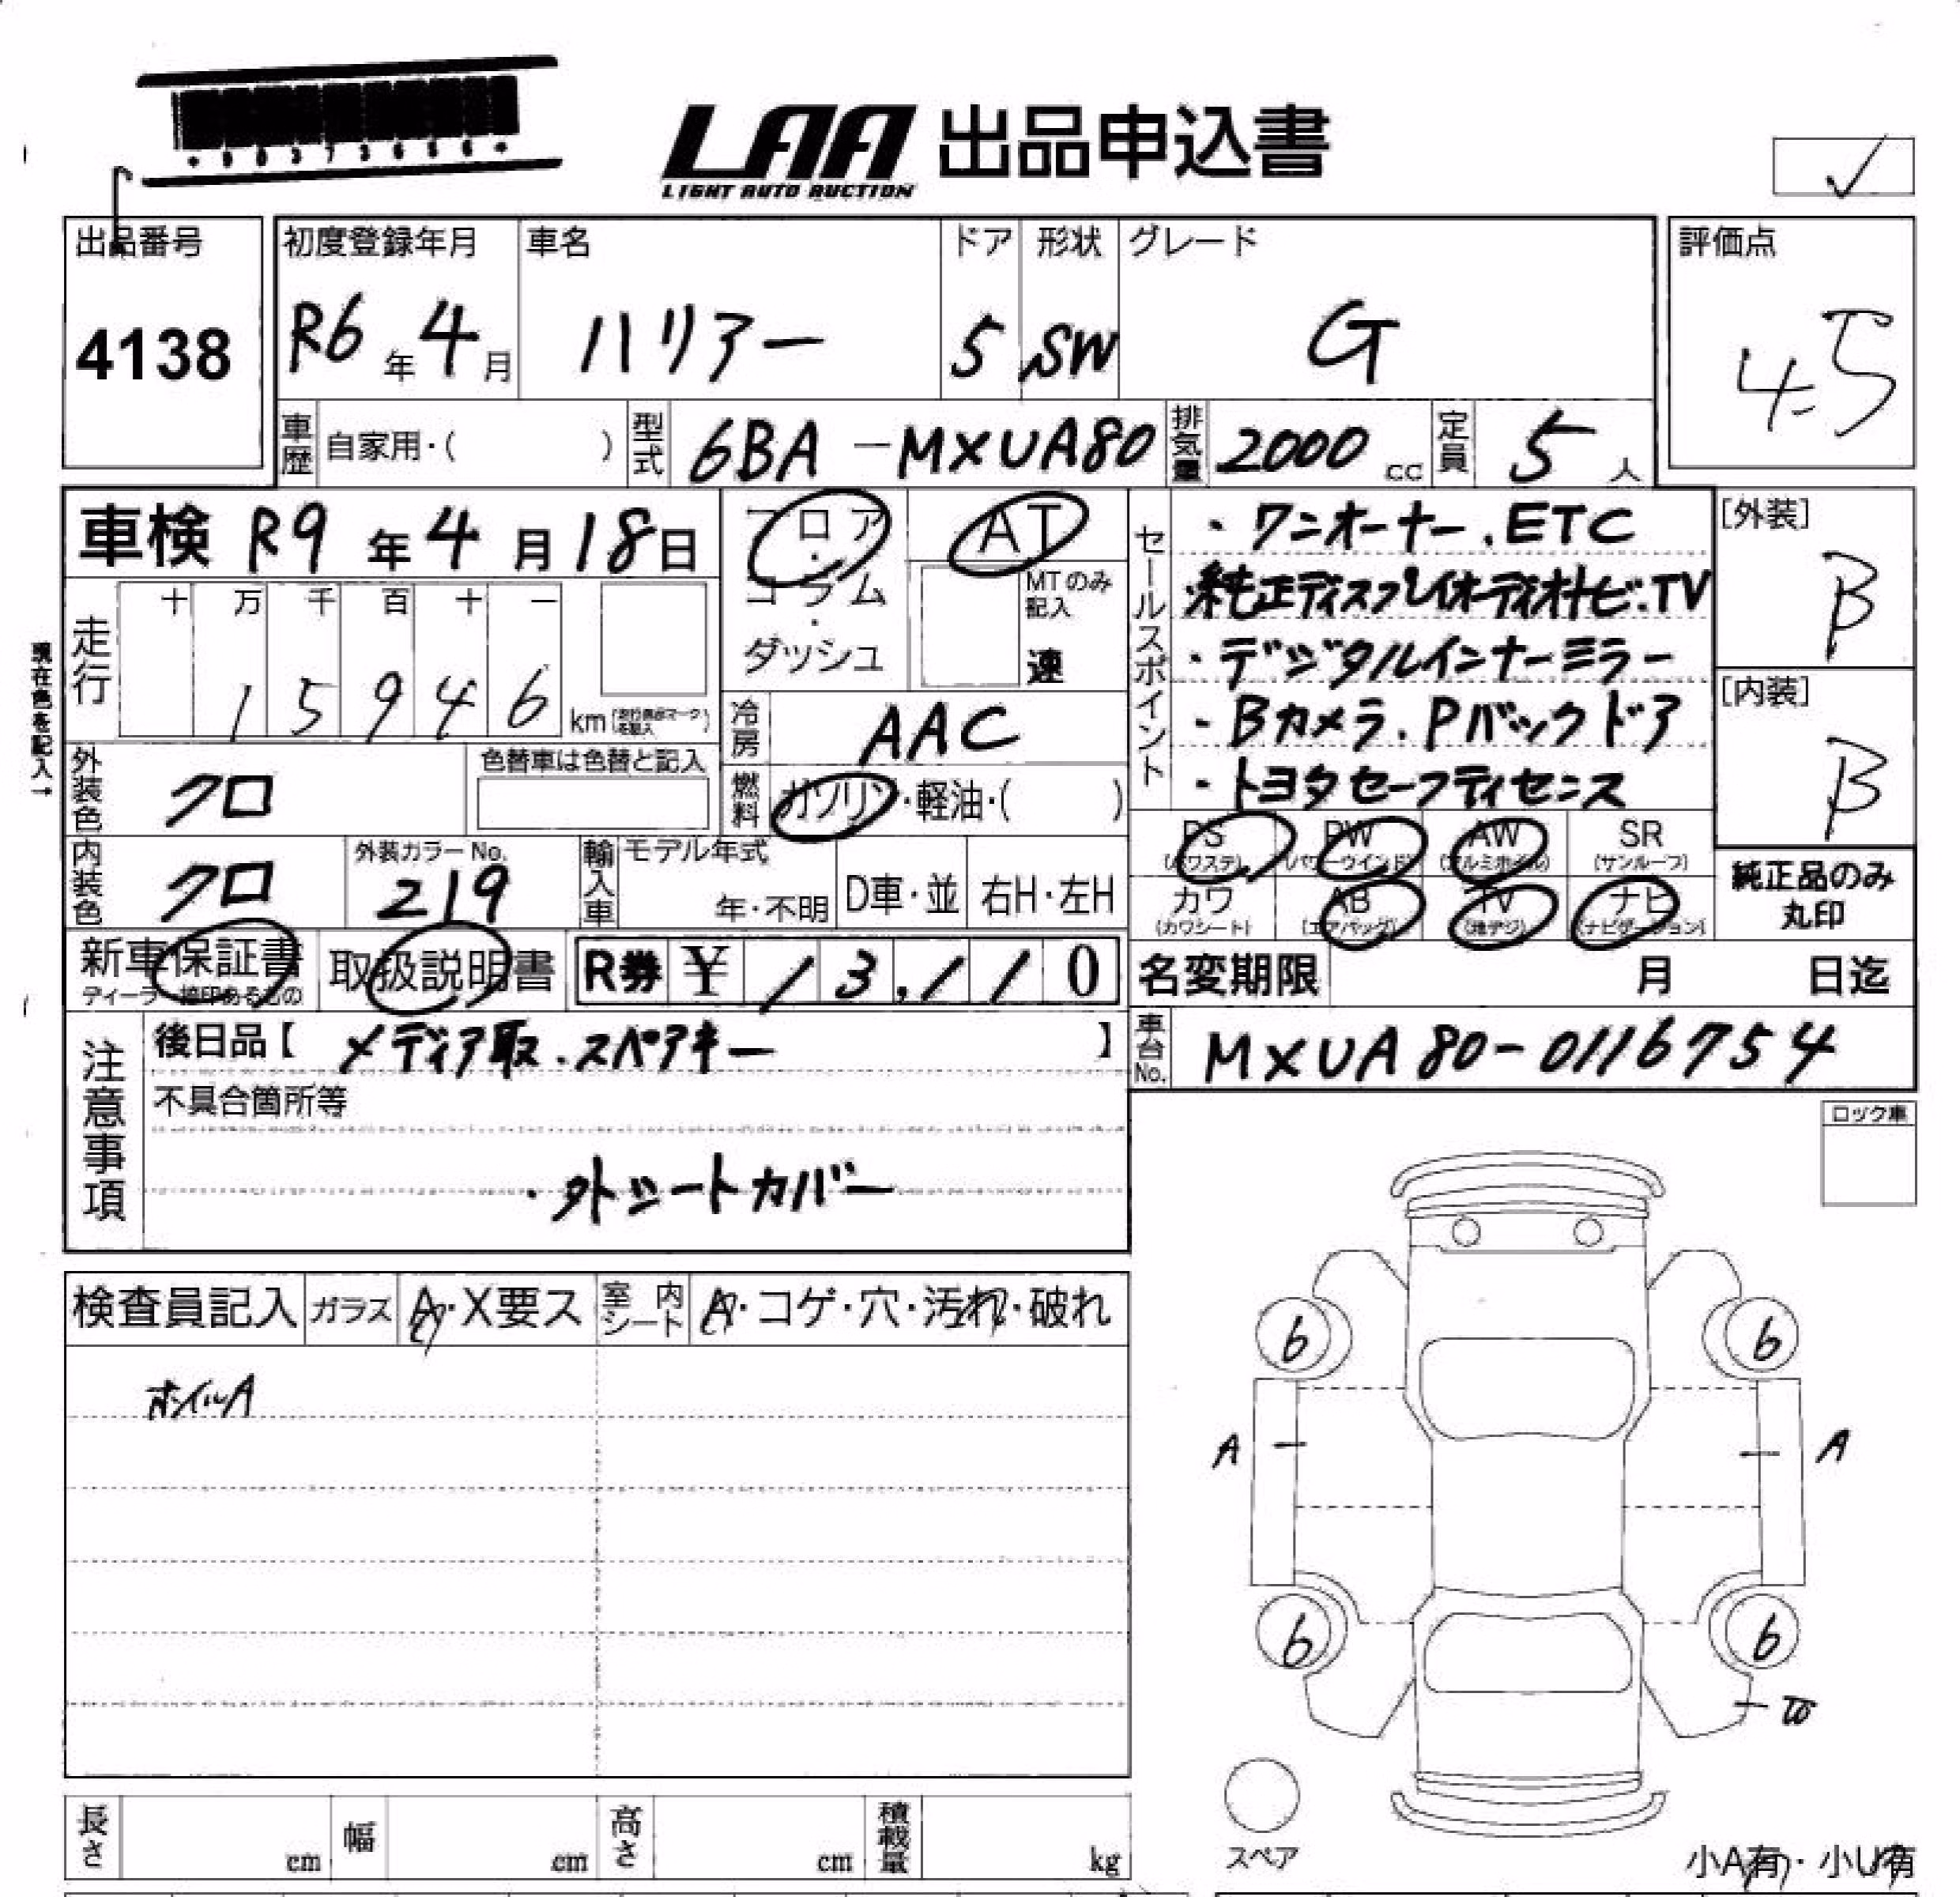 *90373656*
LAA 出品申込書
LIGHT AUTO AUCTION
✓
出品番号 初度登録年月 車名 ドア 形状 グレード 評価点
4138 R6年4月 ハリアー 5 SW G 4.5
車歴 自家用・( ) 型式 6BA-MXUA80 排気量 2000cc 定員 5人
車検 R9年4月18日
フロア・コラム・ダッシュ
AT
MTのみ記入
速
セールスポイント
・ワンオーナー.ETC
純正ディスプレイオーディオナビ.TV
・デジタルインナーミラー
・Bカメラ.Pバックドア
・トヨタセーフティセンス
[外装]
B
[内装]
B
現在色を記入→
走行 十 万 千 百 十 一
15946 km
冷房 AAC
外装色 クロ 色替車は色替と記入
燃料 ガソリン・軽油・( )
内装色 クロ 外装カラーNo. 219
輸入車 モデル年式 年・不明 D車・並 右H・左H
PS (パワステ) PW (パワーウインド) AW (アルミホイル) SR (サンルーフ)
カワ (カワシート) AB (エアバッグ) TV (地デジ) ナビ (ナビゲーション)
純正品のみ丸印
新車保証書 ディーラー捺印あるもの 取扱説明書 R券 ¥13,110
名変期限 月 日迄
注意事項
後日品【 メディア取.スペアキー 】
車台No. MXUA80-0116754
不具合箇所等
・外シートカバー
ロック車
検査員記入 ガラス A・X要ス 室内シート A・コゲ・穴・汚れ・破れ
ホイルA
6 6
A A
6 6
スペア
長さ cm 幅 cm 高さ cm 積載量 kg
小A有・小U有